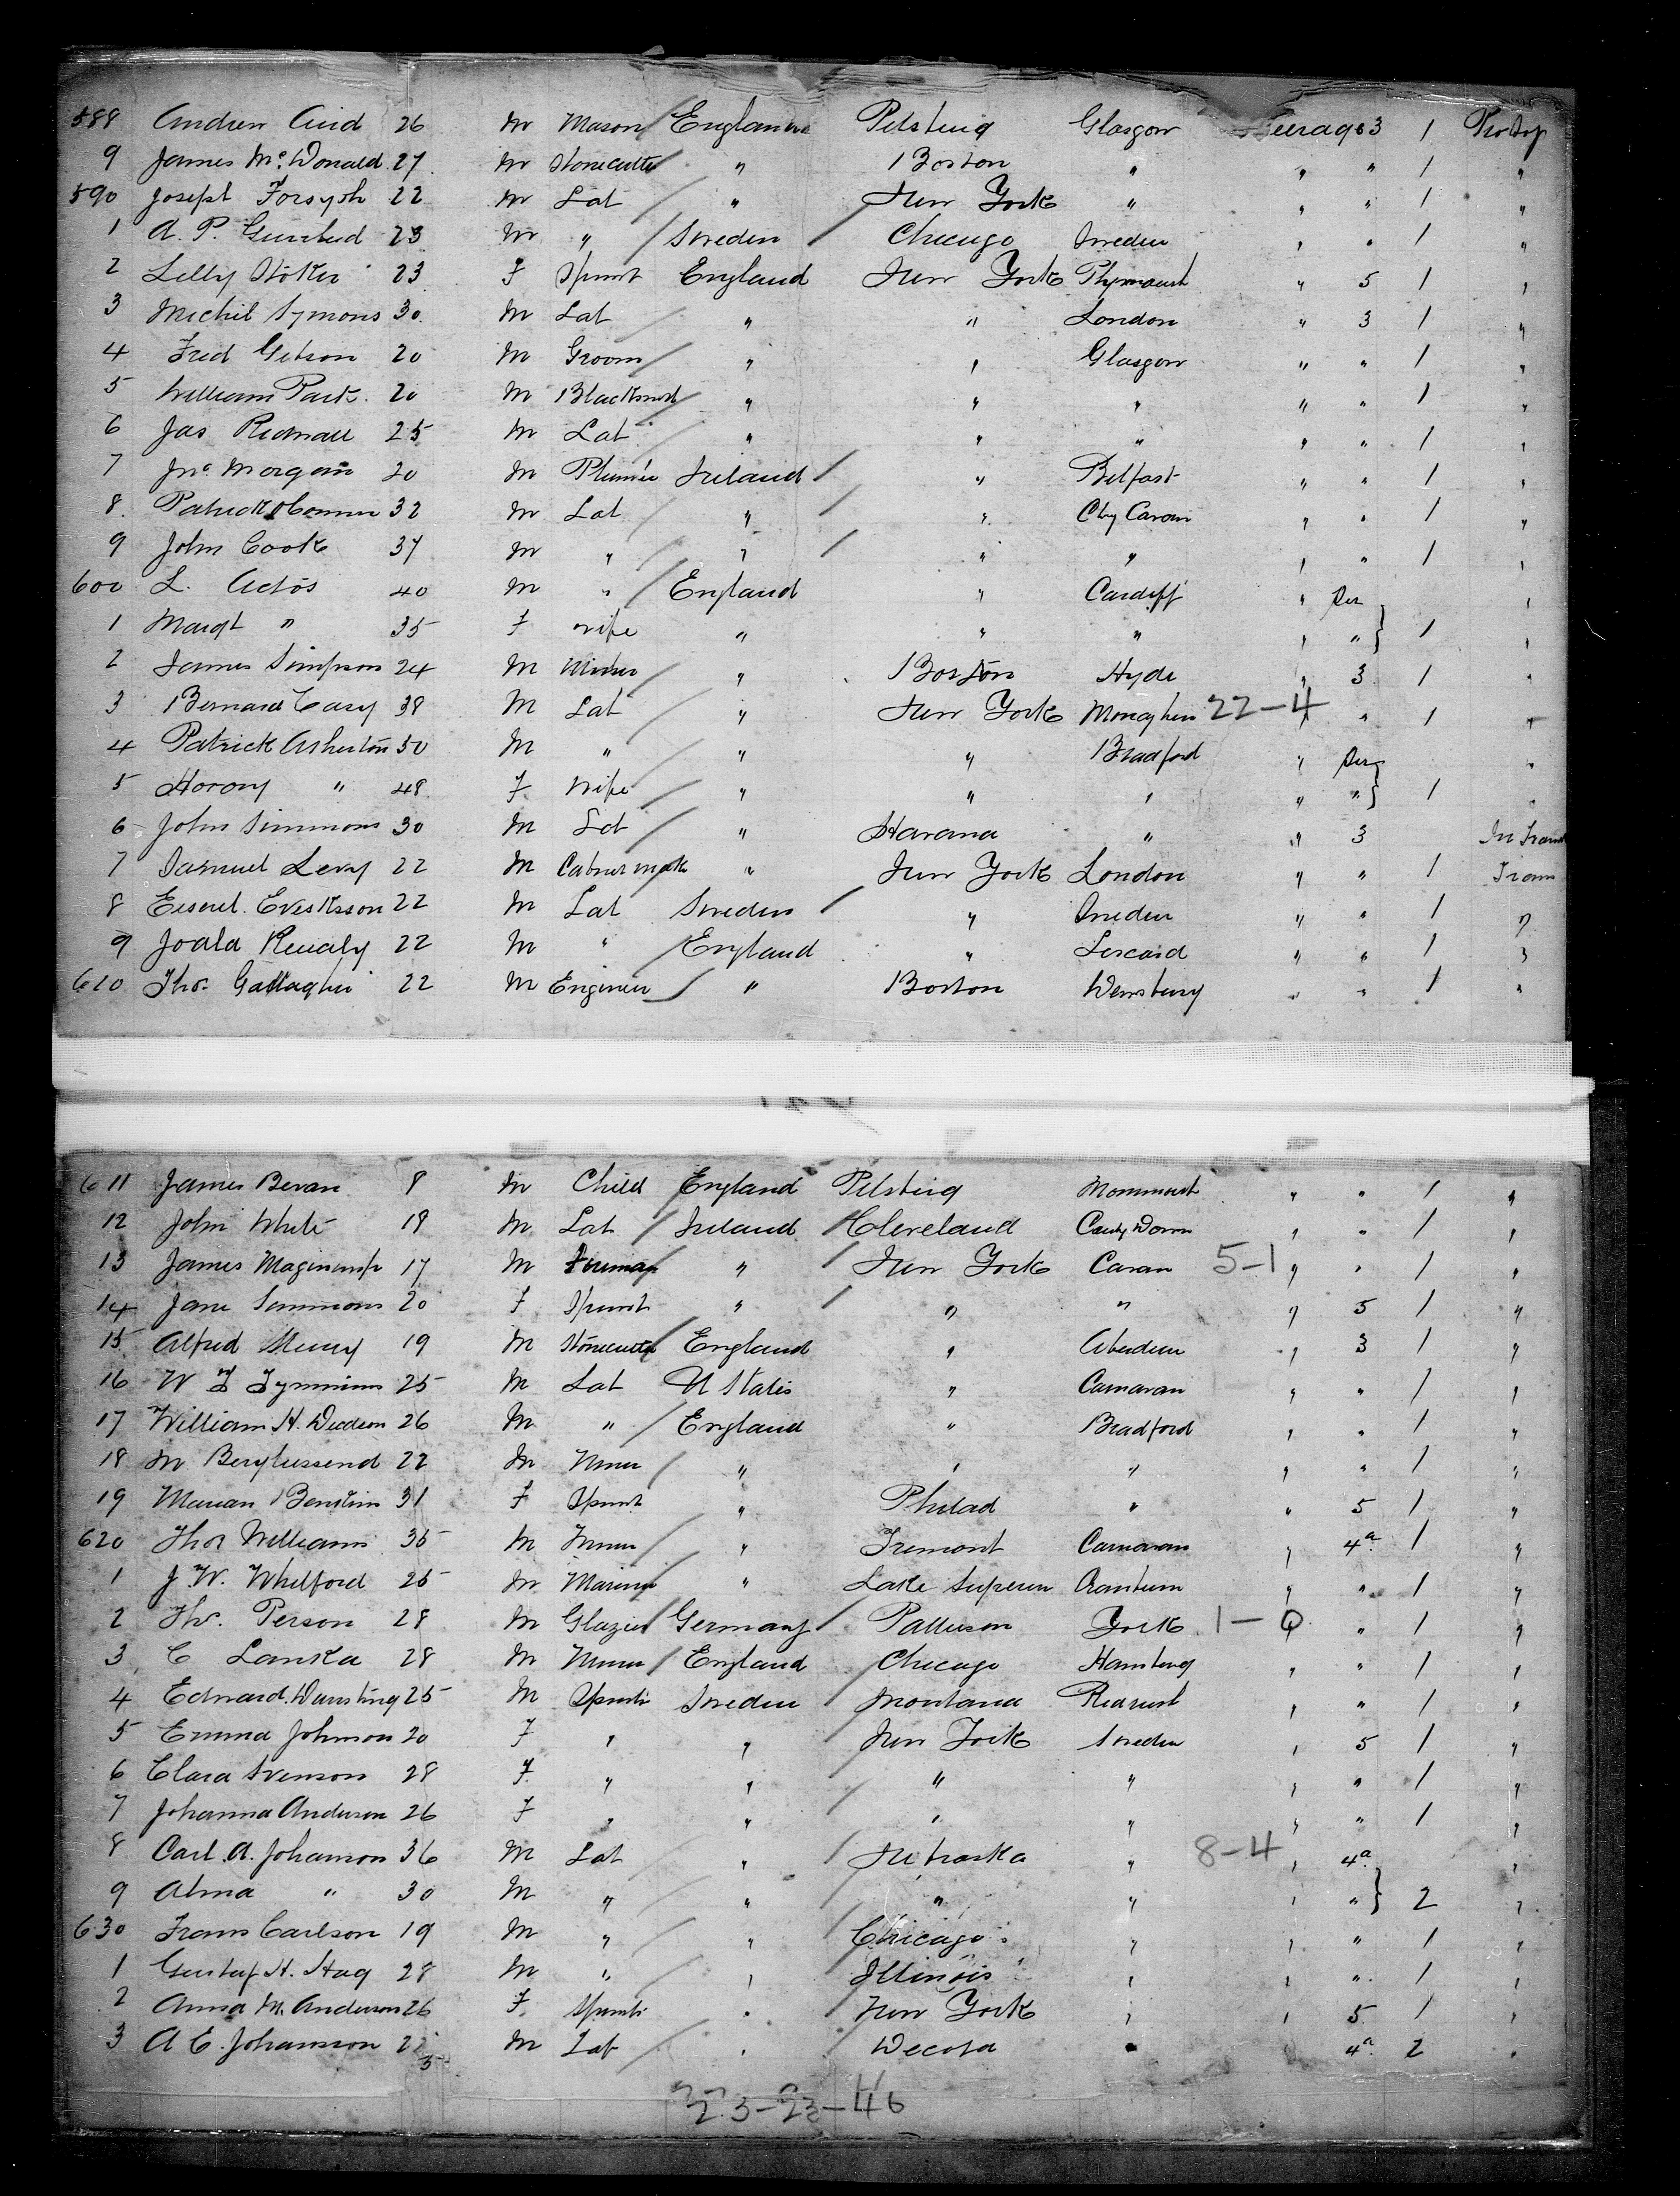 588 Andrew 26 M Mason England Pitsburg Glasgow Steerage 3 1 Protrp
9 James McDonald 27 M Stonecutter " Boston " " " 1 "
590 Joseph Forsyth 22 M Lab " New York " " " 1 "
1 A. P. 23 M " Sweden Chicago Sweden " " 1 "
2 Lilly Stoker 23 F Spinst England New York Plymouth " 5 1 "
3 Michil Symons 30 M Lab " " London " 3 1 "
4 Fred Gibson 20 M Groom " " Glasgow " " 1 "
5 William Park 20 M Blacksmith " " " " " 1 "
6 Jas 25 M Lab " " " " " 1 "
7 Jno Morgan 20 M Ireland " Belfast " " 1 "
8 Patrick OConnor 32 M Lab " " Cty Cavan " " 1 "
9 John Cook 37 M " " " " " " 1 "
600 L. Actos 40 M " England " Cardiff " "
1 Margt " 35 F Wife " " " " " 1 "
2 James Simpson 24 M Miner " Boston Hyde " 3 1 "
3 Bernard Casey 38 M Lab " New York Monaghan 22-4 " " 1 "
4 Patrick Asherton 50 M " " " Bradford " "
5 Horory " 48 F Wife " " " " " 1 "
6 John Simmons 30 M Lab " Havana " " 3 In Transit
7 Samuel Levy 22 M Cabinet mak " New York London " " 1 Trans
8 Eriksson 22 M Lab Sweden " Sweden " " 1 "
9 22 M " England " Liscard " " 1 "
610 Thos. Gallagher 22 M Engineer " Boston Wensbury " " 1 "
611 James Bevan 8 M Child England Pitsburg Monmouth " " 1 "
12 John White 18 M Lab Ireland Cleveland County Down " " 1 "
13 James 17 M Fireman " New York Cavan 5-1 " " 1 "
14 Jane Simmons 20 F Spinst " " " " 5 1 "
15 Alfred 19 M Stonecutter England " Aberdeen " 3 1 "
16 W 25 M Lab U States " Carnarvan " " 1 "
17 William H. 26 M " England " Bradford " " 1 "
18 M 22 M Miner " " " " " 1 "
19 Marian 31 F Spinst " Philad " " 5 1 "
620 Thos Williams 35 M Miner " Tremont Carnarvan " 4a 1 "
1 J W. Whilford 25 M Mariner " Lake Superior " " 1 "
2 Thos. Person 28 M Glazier Germany Patterson York 1-0 " " 1 "
3 C Lanka 28 M Miner England Chicago Hamburg " " 1 "
4 Edward 25 M Spinst Sweden Montana Redruth " " 1 "
5 Emma Johnson 20 F " " New York Sweden " 5 1 "
6 Clara Svenson 28 F " " " " " " 1 "
7 Johanna Anderson 26 F " " " " " " 1 "
8 Carl A. Johanson 36 M Lab " Nebraska " 8-4 " 4a "
9 Alma " 30 M " " " " " " 2 "
630 Frans Carlson 19 M " " Chicago " " " 1 "
1 Gustaf H. Hag 28 M " " Illinois " " " 1 "
2 Anna M. Anderson 26 F Spinst " New York " " 5 1 "
3 A E. Johanson M Lab " Decota " 4a 2 "
23-23-46